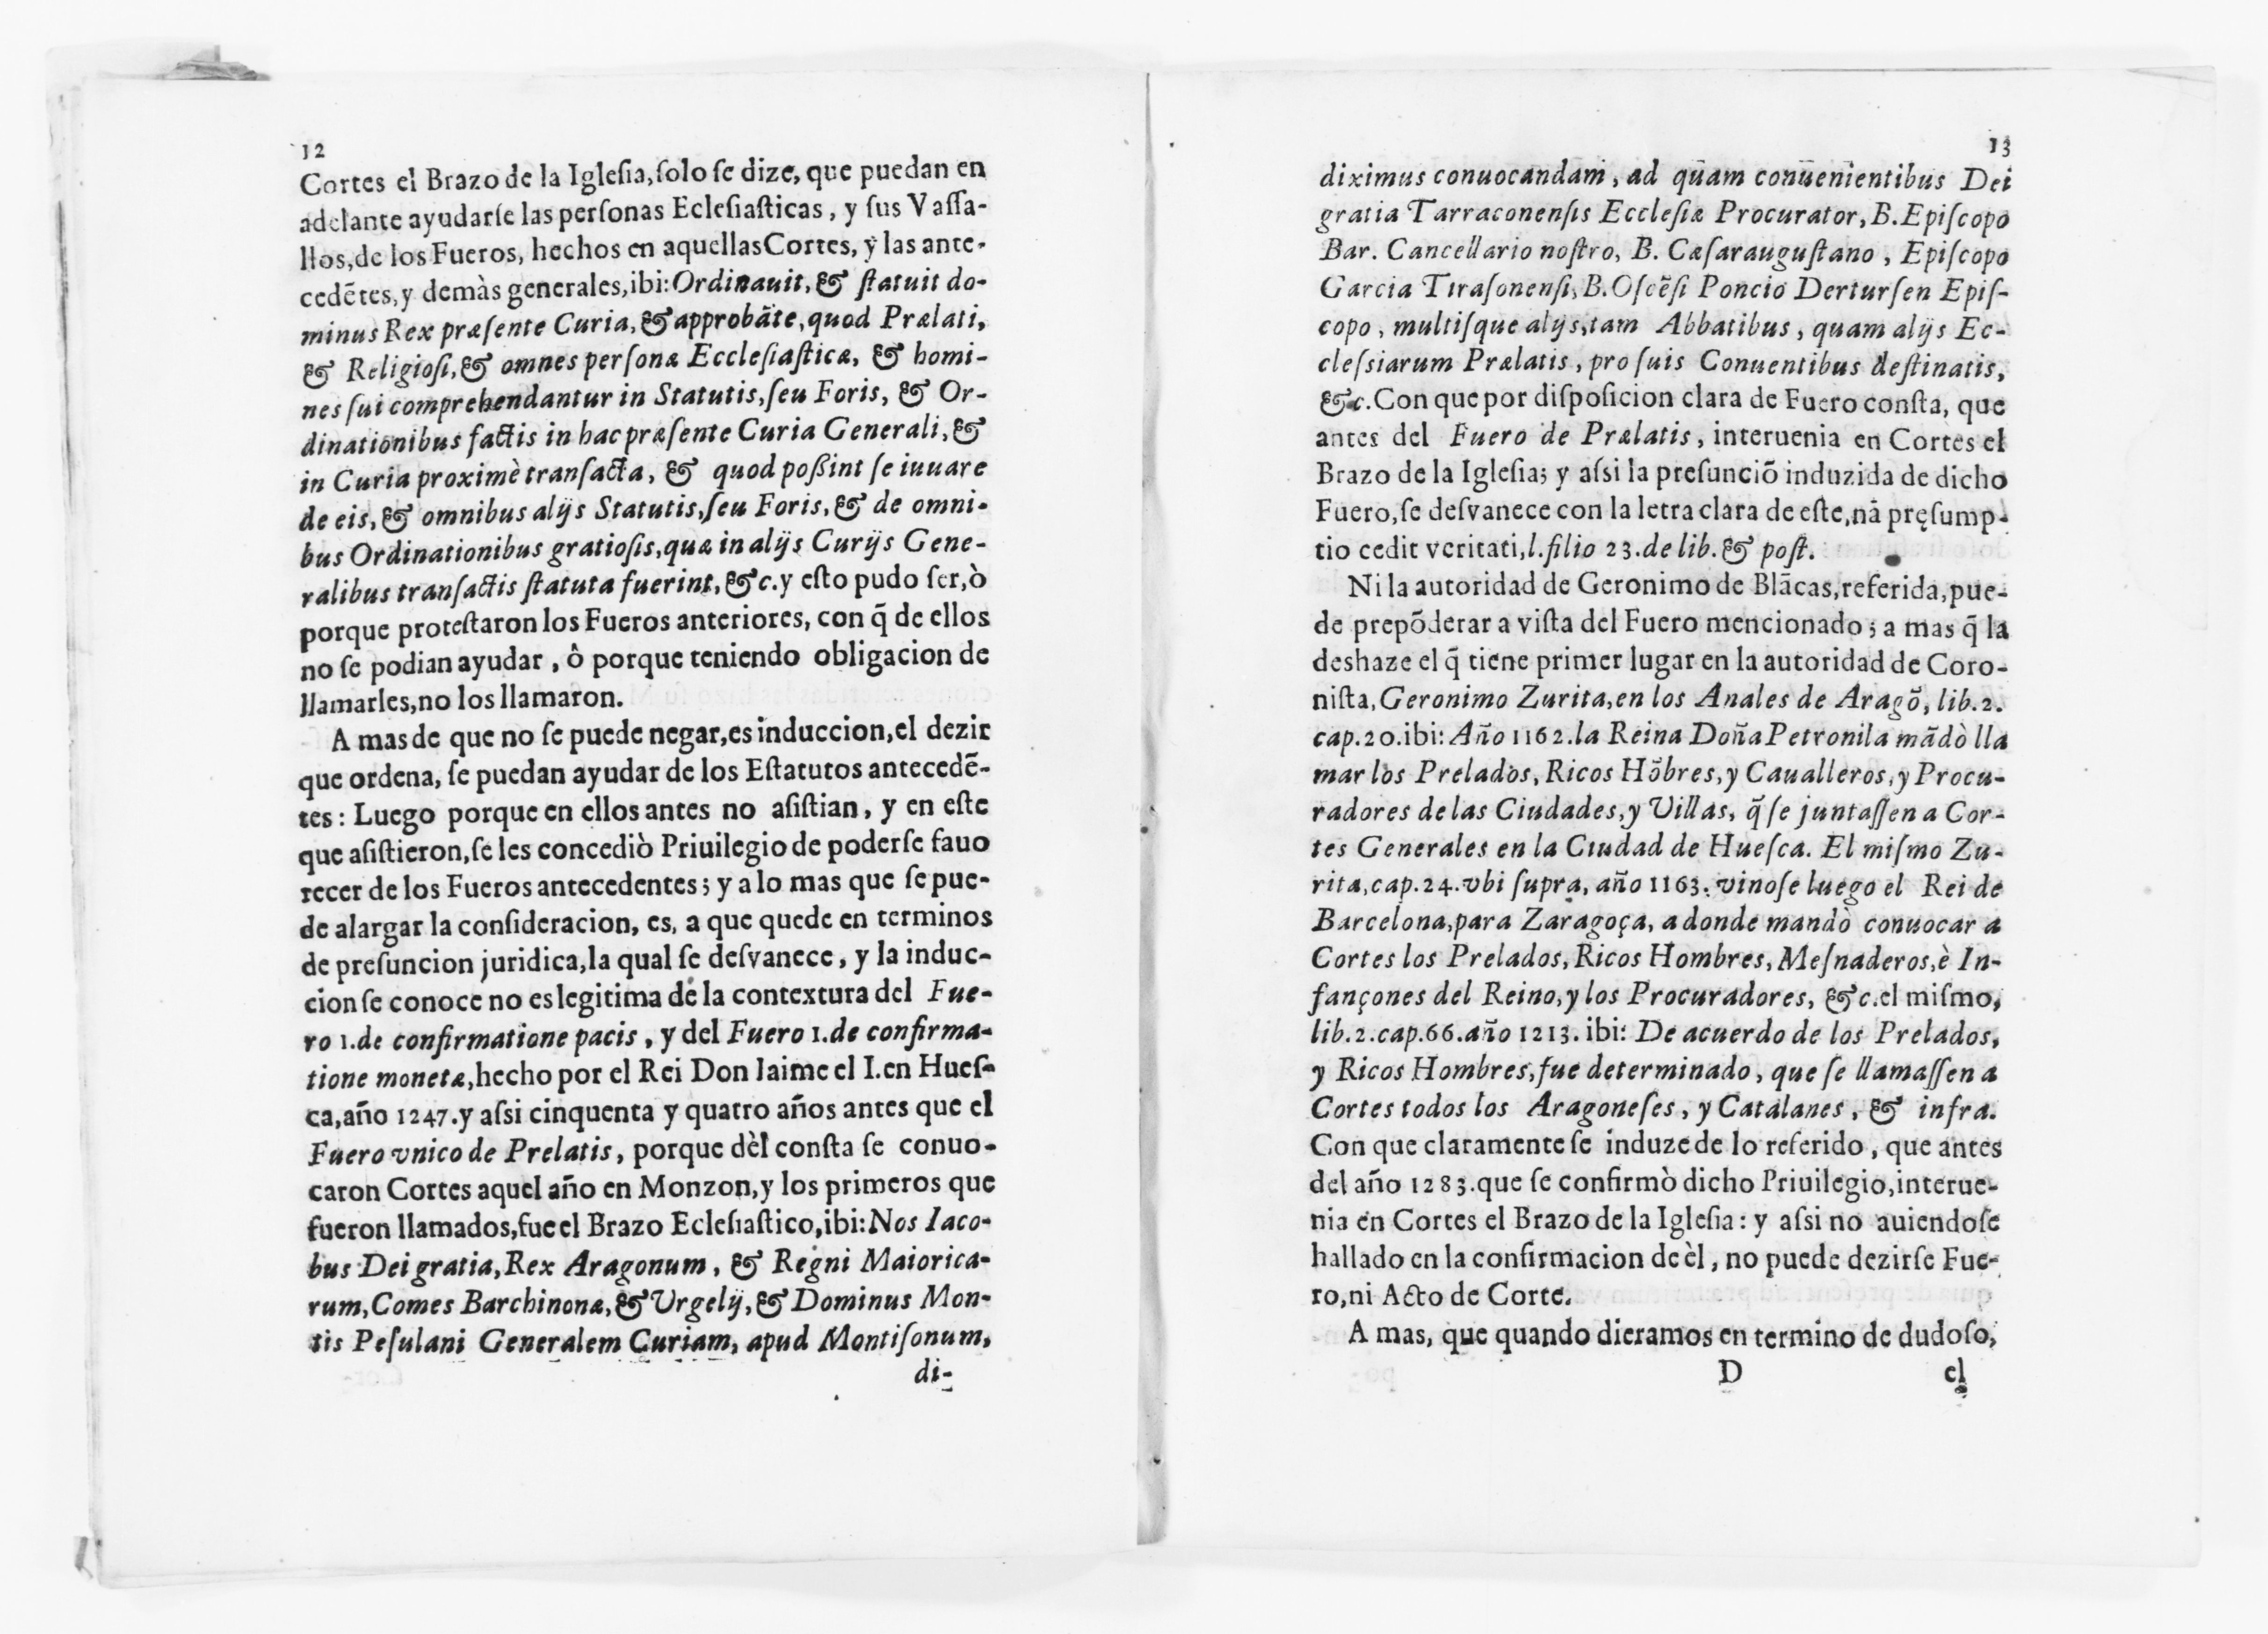 12
Cortes el Brazo de la Igleſia, ſolo ſe dize, que puedan en
adelante ayudarſe las perſonas Ecleſiaſticas, y ſus Vaſſa-
llos, de los Fueros, hechos en aquellas Cortes, y las ante-
cedẽtes, y demàs generales, ibi: Ordinauit, & ſtatuit do-
minus Rex præſente Curia, & approbãte, quod Prælati,
& Religioſi, & omnes perſonæ Eccleſiaſticæ, & homi-
nes ſui comprehendantur in Statutis, ſeu Foris, & Or-
dinationibus factis in hac præſente Curia Generali, &
in Curia proximè tranſacta, & quod poßint ſe iuuare
de eis, & omnibus alijs Statutis, ſeu Foris, & de omni-
bus Ordinationibus gratioſis, quæ in alijs Curijs Gene-
ralibus tranſactis ſtatuta fuerint, &c. y eſto pudo ſer, ò
porque proteſtaron los Fueros anteriores, con q̃ de ellos
no ſe podian ayudar, ô porque teniendo obligacion de
llamarles, no los llamaron.
A mas de que no ſe puede negar, es induccion, el dezir
que ordena, ſe puedan ayudar de los Eſtatutos antecedẽ-
tes: Luego porque en ellos antes no aſiſtian, y en eſte
que aſiſtieron, ſe les concediò Priuilegio de poderſe fauo
recer de los Fueros antecedentes; y a lo mas que ſe pue-
de alargar la conſideracion, es, a que quede en terminos
de preſuncion juridica, la qual ſe deſvanece, y la induc-
cion ſe conoce no es legitima de la contextura del Fue-
ro 1. de confirmatione pacis, y del Fuero 1. de confirma-
tione monetæ, hecho por el Rei Don Iaime el I. en Hueſ-
ca, año 1247. y aſsi cinquenta y quatro años antes que el
Fuero vnico de Prelatis, porque dèl conſta ſe conuo-
caron Cortes aquel año en Monzon, y los primeros que
fueron llamados, fue el Brazo Ecleſiaſtico, ibi: Nos Iaco-
bus Dei gratia, Rex Aragonum, & Regni Maiorica-
rum, Comes Barchinonæ, & Urgelij, & Dominus Mon-
tis Peſulani Generalem Curiam, apud Montiſonum,
di-
13
diximus conuocandam, ad quam conuenientibus Dei
gratia Tarraconenſis Eccleſiæ Procurator, B. Epiſcopo
Bar. Cancellario noſtro, B. Cæſarauguſtano, Epiſcopo
Garcia Tiraſonenſi, B. Oſcẽſi Poncio Derturſen Epiſ-
copo, multiſque alijs, tam Abbatibus, quam alijs Ec-
cleſsiarum Prælatis, pro ſuis Conuentibus deſtinatis,
&c. Con que por diſpoſicion clara de Fuero conſta, que
antes del Fuero de Prælatis, interuenia en Cortes el
Brazo de la Igleſia; y aſsi la preſunciõ induzida de dicho
Fuero, ſe deſvanece con la letra clara de eſte, nã pręſump-
tio cedit veritati, l. filio 23. de lib. & poſt.
Ni la autoridad de Geronimo de Blãcas, referida, pue-
de prepõderar a viſta del Fuero mencionado; a mas q̃ la
deshaze el q̃ tiene primer lugar en la autoridad de Coro-
niſta, Geronimo Zurita, en los Anales de Aragõ, lib. 2.
cap. 20. ibi: Año 1162. la Reina Doña Petronila mãdò lla
mar los Prelados, Ricos Hõbres, y Caualleros, y Procu-
radores de las Ciudades, y Villas, q̃ ſe juntaſſen a Cor-
tes Generales en la Ciudad de Hueſca. El miſmo Zu-
rita, cap. 24. vbi ſupra, año 1163. vinoſe luego el Rei de
Barcelona, para Zaragoça, a donde mandò conuocar a
Cortes los Prelados, Ricos Hombres, Meſnaderos, è In-
fançones del Reino, y los Procuradores, &c. el miſmo,
lib. 2. cap. 66. año 1213. ibi: De acuerdo de los Prelados,
y Ricos Hombres, fue determinado, que ſe llamaſſen a
Cortes todos los Aragoneſes, y Catalanes, & infra.
Con que claramente ſe induze de lo referido, que antes
del año 1283. que ſe confirmò dicho Priuilegio, interue-
nia en Cortes el Brazo de la Igleſia: y aſsi no auiendoſe
hallado en la confirmacion de èl, no puede dezirſe Fue-
ro, ni Acto de Corte.
A mas, que quando dieramos en termino de dudoſo,
D el